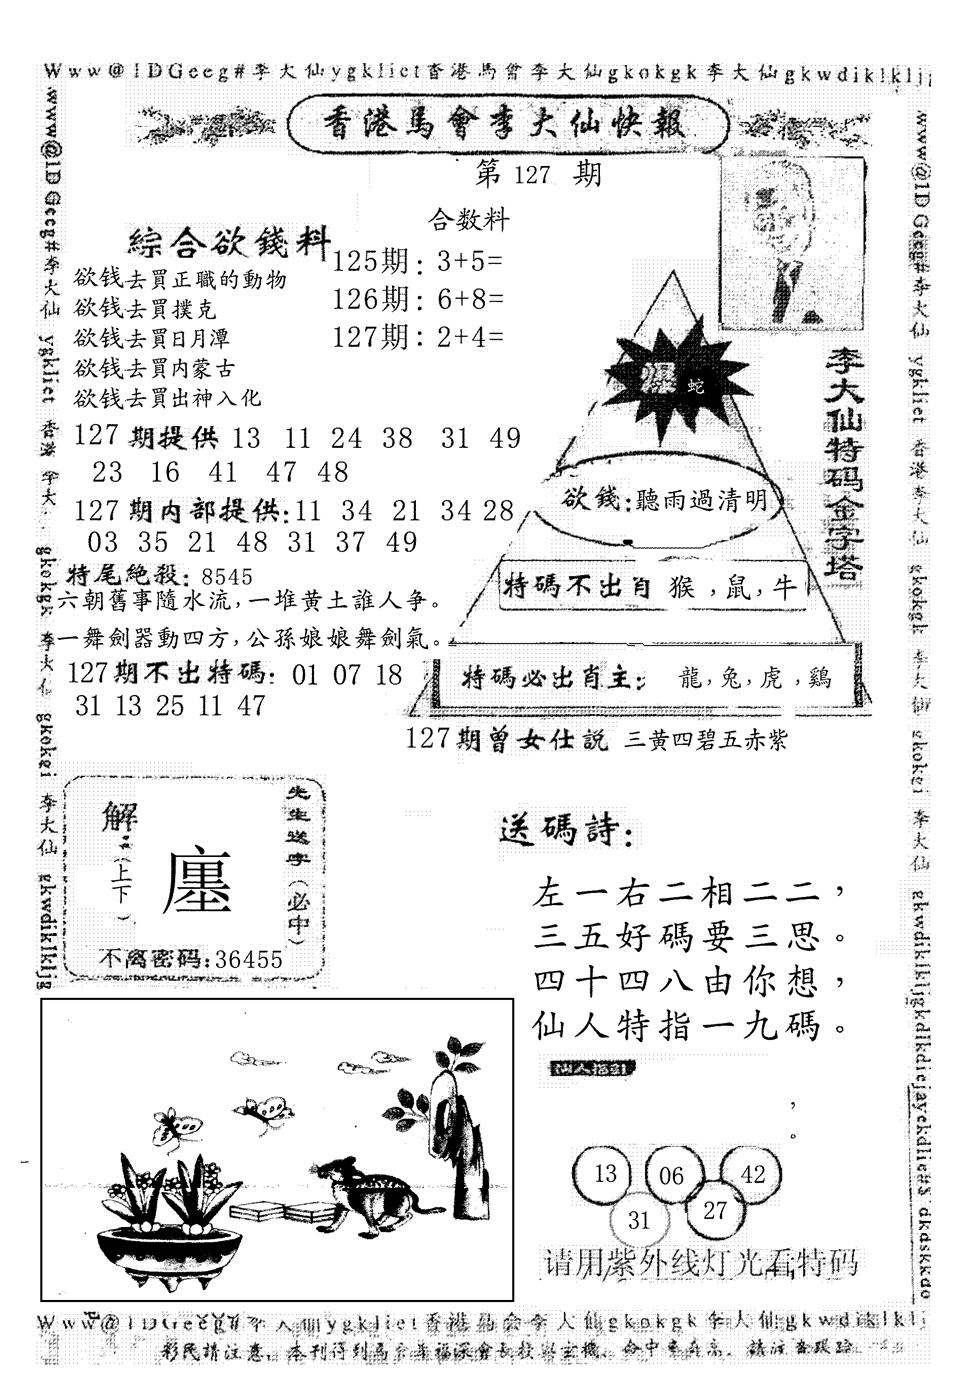 Www@1DGeeg#李大仙ygkliet香港馬會李大仙gkokgk李大仙gkwdiklkljg
香港馬會李大仙快報
第 127 期
合数料
綜合欲錢料
125期: 3+5=
126期: 6+8=
127期: 2+4=
欲钱去買正職的動物
欲钱去買撲克
欲钱去買日月潭
欲钱去買内蒙古
欲钱去買出神入化
127 期提供 13 11 24 38 31 49
23 16 41 47 48
127 期内部提供:11 34 21 34 28
03 35 21 48 31 37 49
特尾絶殺: 8545
六朝舊事隨水流,一堆黄土誰人争。
一舞劍器動四方,公孫娘娘舞劍氣。
127 期不出特碼: 01 07 18
31 13 25 11 47
李大仙特码金字塔
爆 蛇
欲錢:聽雨過清明
特碼不出肖 猴,鼠,牛
特碼必出肖主: 龍,兔,虎,鷄
127期曾女仕説 三黄四碧五赤紫
解
(上下)
廛
先生送字(必中)
不离密码:36455
送碼詩:
左一右二相二二,
三五好碼要三思。
四十四八由你想,
仙人特指一九碼。
仙人指引
,
。
13 06 42
31 27
请用紫外线灯光看特码
Www@1DGeeg#李大仙ygkliet香港馬会李大仙gkokgk李大仙gkwdiklklj